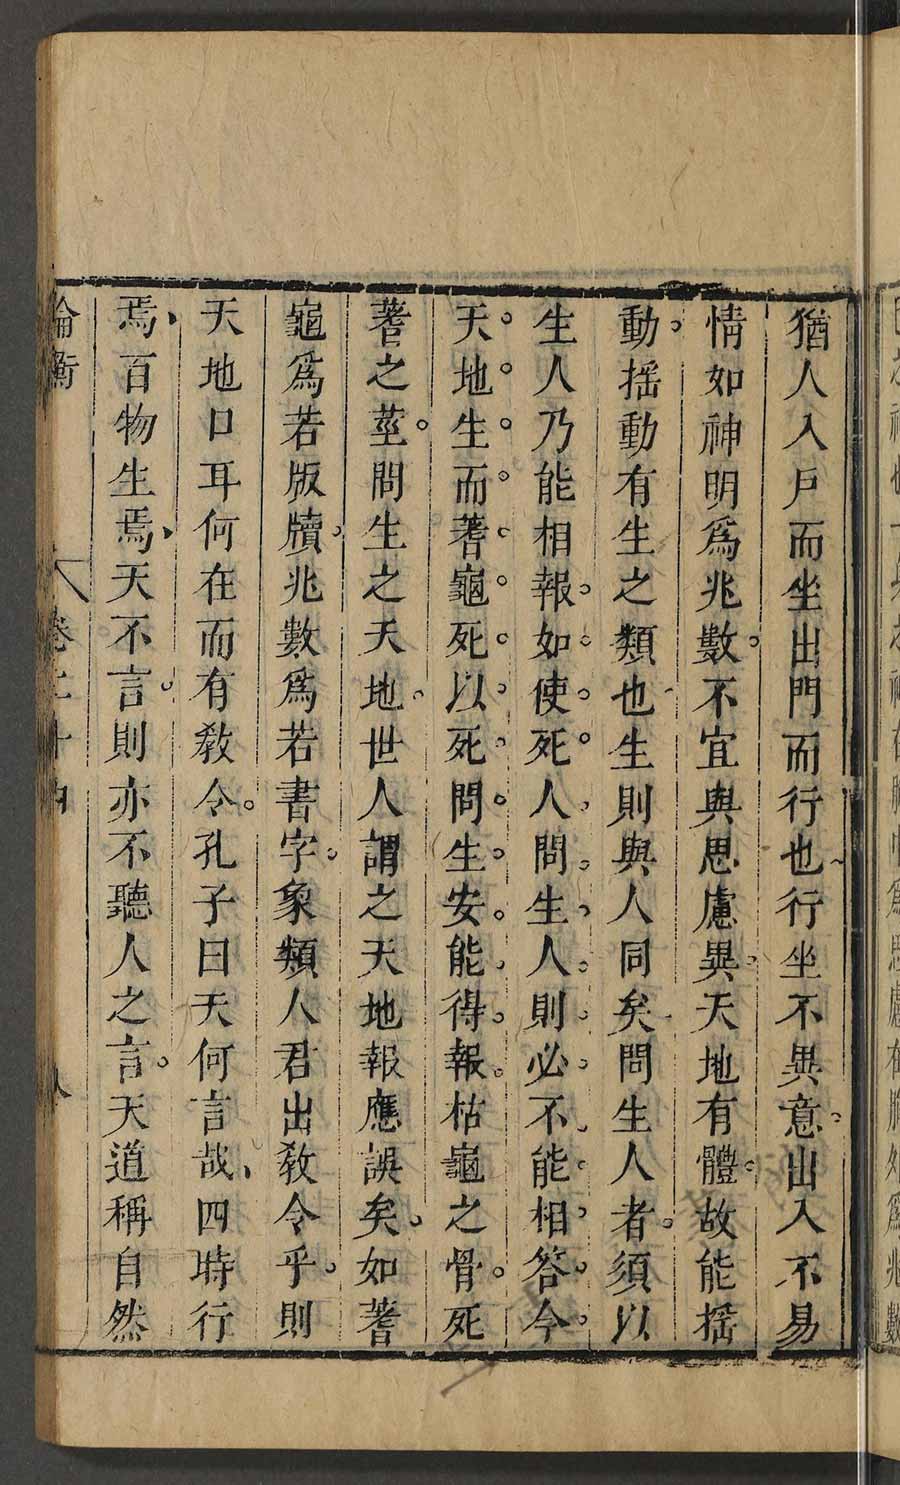 猶人入戸而坐出門而行也行坐不異意出入不易
情如神明爲兆數不宜與思慮異天地有體故能揺
動揺動有生之類也生則與人同矣問生人者須以
生人乃能相報如使死人問生人則必不能相答今
天地生而蓍龜死以死問生安能得報枯龜之骨死
蓍之莖問生之天地世人謂之天地報應誤矣如蓍
龜爲若版牘兆數爲若書字象類人君出教令乎則
天地口耳何在而有教令孔子曰天何言哉四時行
焉百物生焉天不言則亦不聽人之言天道稱自然
論衡 卷二十四 八